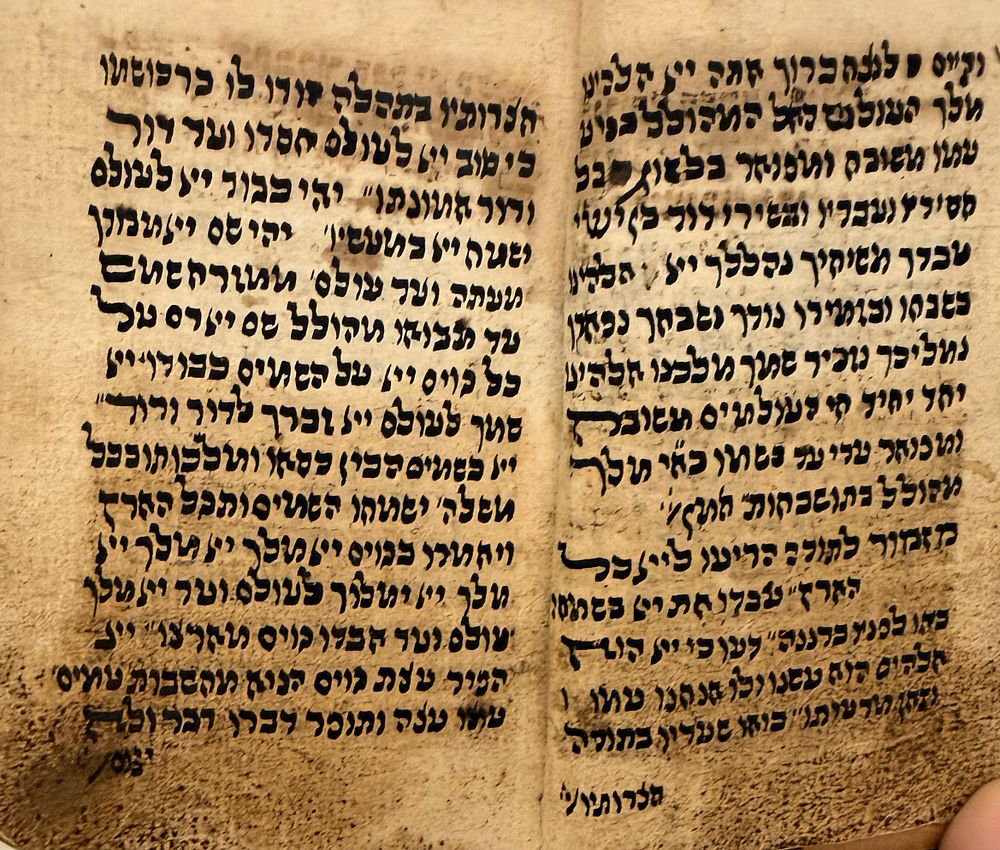 וקיים לנצח ברוך אתה ייא אלהינו
מלך העולם האל המהולל בפי
עמו משובח ומפואר בלשון כל
חסידיו ועבדיו ובשירי דוד בן ישי
עבדך משיחיך נהללך ייא אלהינו
בשבחו ובזמירו נודך נשבחך נפארך
נמליכך נזכיר שמך מלכנו אלהינו
יחד יחיד חי העולמים משובח
ומפואר עדי עד בשמו מלך
מהולל בתושבחות״ אמן
מזמור לתודה הריעו לייא כל
הארץ״ עבדו את ייא בשמחה
באו לפניו ברננה״ דעו כי ייא הוא
אלהים הוא עשנו ולו אנחנו עמו ו
וצאן מרעיתו״ בואו שעריו בתודה
חצרותיו
חצרותיו בתהלה הודו לו ברכו שמו
כי טוב ייא לעולם חסדו ועד דור
ודור אמונתו״ יהי כבוד ייא לעולם
ישמח ייא במעשיו׳ יהי שם ייא מבורך
מעתה ועד עולם׳ ממזרח שמש
עד מבואו מהולל שם ייא רם על
כל גוים ייא על השמים כבודו״ ייא
שמך לעולם ייא זכרך לדור ודור״
ייא בשמים הכין כסאו ומלכותו בכל
משלה׳ ישמחו השמים ותגל הארץ
ויאמרו בגוים ייא מלך ייא מלך ייא
מלך ייא ימלוך לעולם ועד ייא מלך
עולם ועד אבדו גוים מארצו״ ייא
הפיר עצת גוים הניא מחשבות עמים
עמו עצה ותומר דברו דבר ולא
יקום